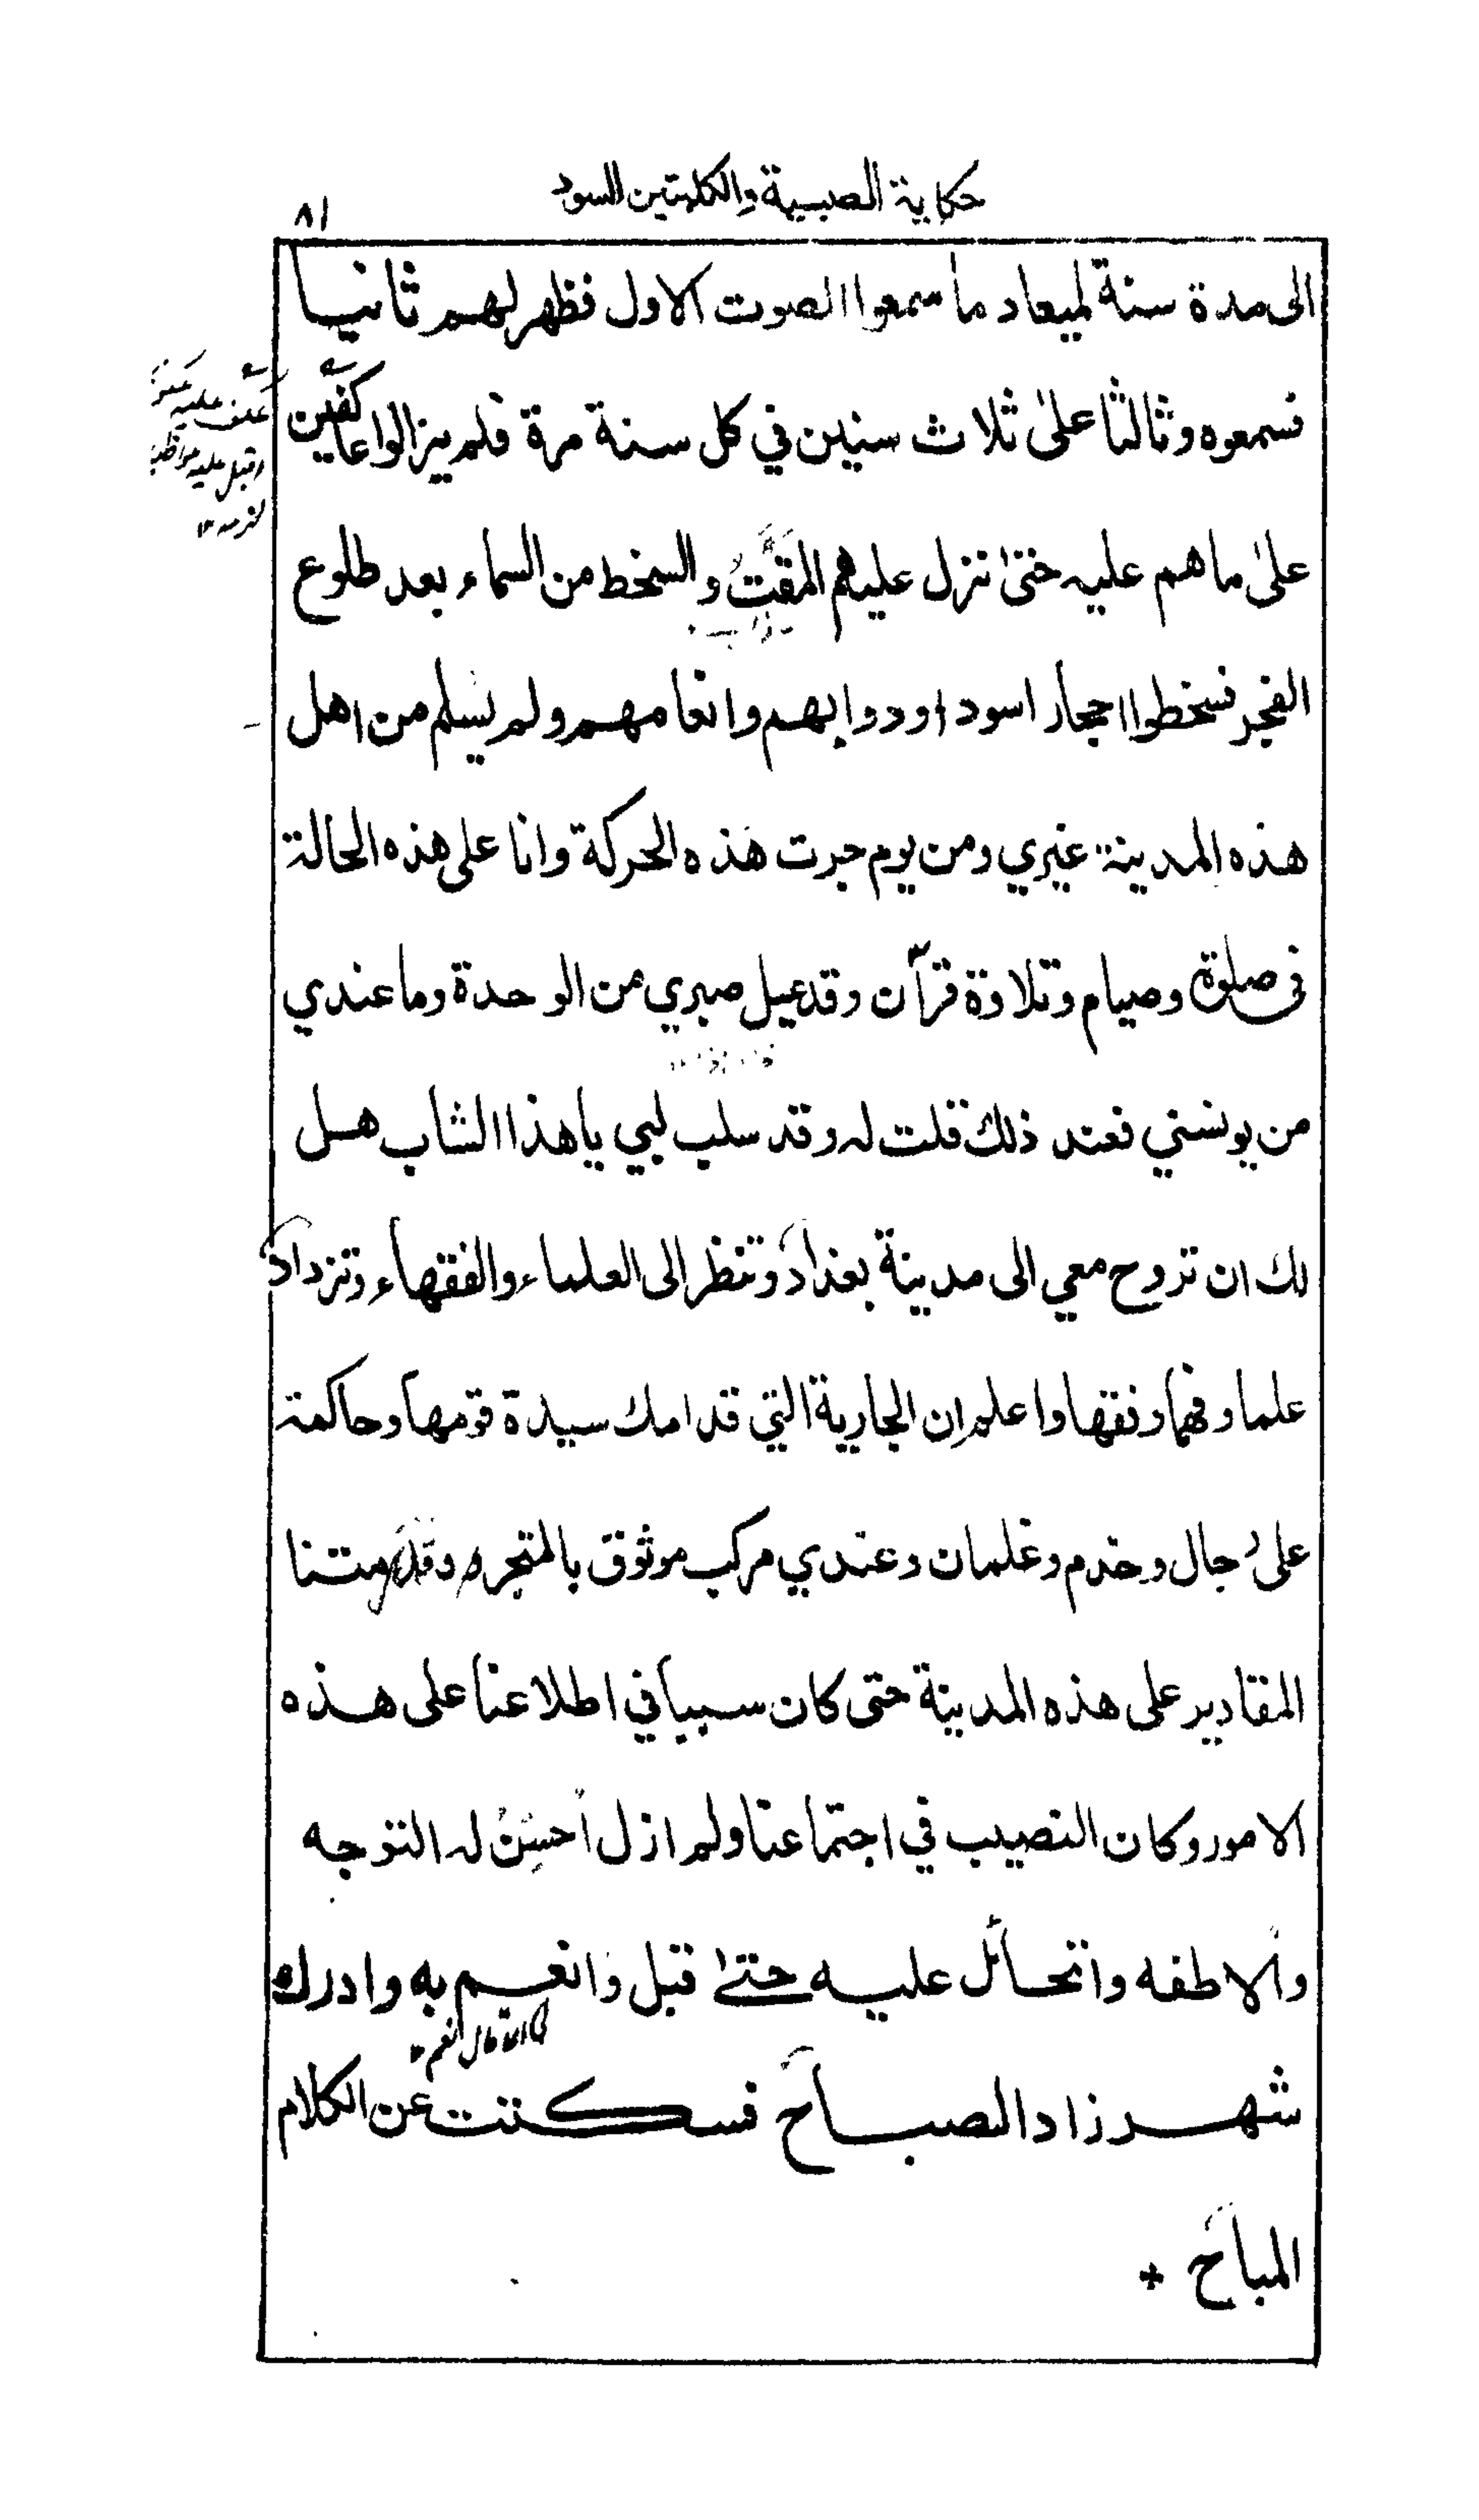 حكاية الصبية والكلبتين السود
٨١
الى مدة سنة لميعاد ما سمعوا الصوت الاول فظهر لهم ثانيا
فسمعوه وثالثا على ثلاث سنين في كل سنة مرة فلم يزالوا عاكفين
على ما هم عليه حتى نزل عليهم المقت والسخط من السماء بعد طلوع
الفجر فسخطوا احجار اسود او دوابهم وانعامهم ولم يسلم من اهل
هذه المدينة غيري ومن يوم جرت هذه الحركة وانا على هذه الحالة
فى صلوة وصيام وتلاوة قرآن وقد عيل صبري من الوحدة وما عندي
من يونسني فعند ذلك قلت له وقد سلب لبي يا هذا الشاب هل
لك ان تروح معي الى مدينة بغداد وتنظر الى العلماء والفقهاء وتزداد
علما وفهما وفقها واعلم ان الجارية التي قدامك سيدة قومها وحاكمة
على رجال وخدم وغلمان وعندي مركب موثوق بالمتجر وقد رمتنا
المقادير على هذه المدينة حتى كان سببا في اطلاعنا على هذه
الامور وكان النصيب في اجتماعنا ولم ازل اُحسِنُ له التوجه
وألاطفه واتحائل عليه حتى قبل وانعم به وادرك
شهرزاد الصباح فسكتت عن الكلام
المباح +